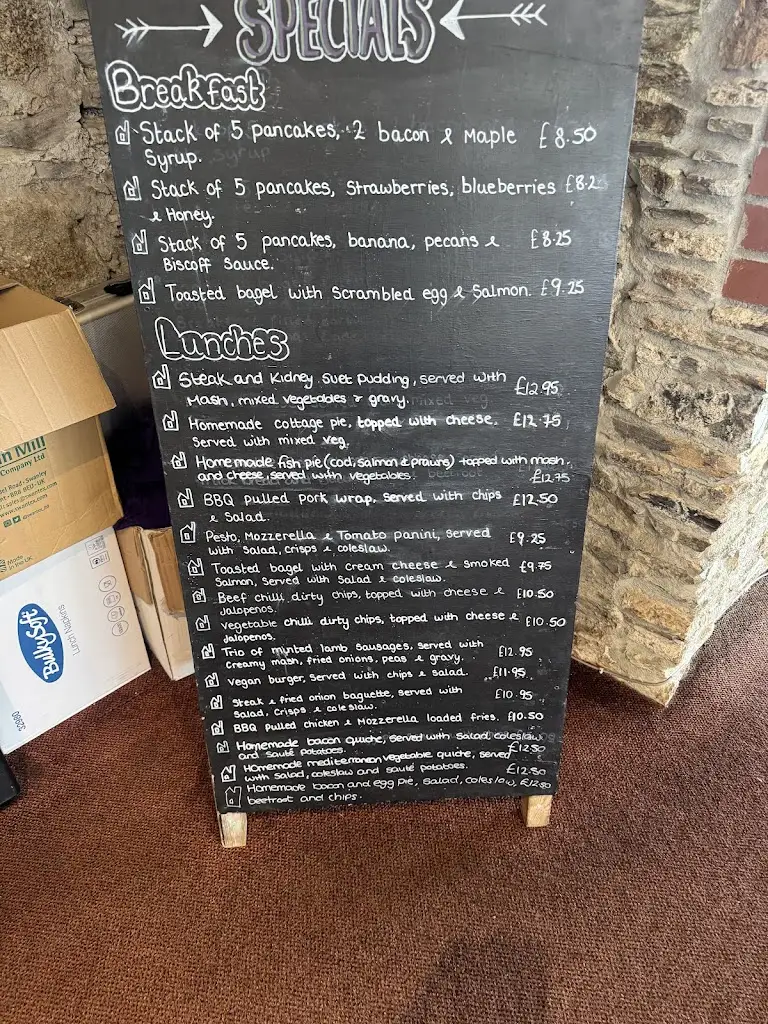 SPECIALS
Breakfast
Stack of 5 pancakes, 2 bacon & Maple £8.50
Syrup.
Stack of 5 pancakes, Strawberries, blueberries £8.2
& Honey.
Stack of 5 pancakes, banana, pecans & £8.25
Biscoff Sauce.
Toasted bagel with Scrambled egg & Salmon. £9.25
Lunches
Steak and Kidney Suet Pudding, served with £12.95
Mash, mixed vegetables & gravy.
Homemade cottage pie, topped with cheese. £12.75
Served with mixed veg.
Homemade fish pie (cod, salmon & prawns) topped with mash,
and cheese, served with vegetables. £12.75
BBQ pulled pork wrap, served with chips £12.50
& Salad.
Pesto, Mozzerella & Tomato panini, Served £9.25
with Salad, crisps & coleslaw.
Toasted bagel with cream cheese & smoked £9.75
Salmon, Served with Salad & coleslaw.
Beef chilli dirty chips, topped with cheese & £10.50
Jalopenos.
Vegetable chilli dirty chips, topped with cheese & £10.50
Jalopenos.
Trio of minted lamb Sausages, served with £12.95
Creamy mash, fried onions, peas & gravy.
Vegan burger, Served with chips & Salad. £11.95
Steak & fried onion baguette, Served with £10.95
Salad, Crisps & coleslaw.
BBQ pulled chicken & Mozzerella loaded fries. £10.50
Homemade bacon quiche, served with salad, coleslaw
and sauté potatoes. £12.50
Homemade mediterranean vegetable quiche, served
with salad, coleslaw and sauté potatoes. £12.50
Homemade bacon and egg pie, salad, coleslaw, £12.50
beetroot and chips.
n Mill
Company Ltd
Made
in the UK
BulkySoft
Lunch Napkins
32980